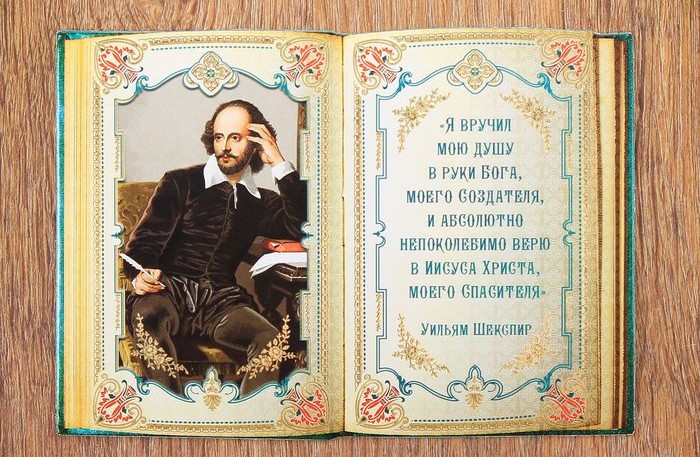 «Я вручил
мою душу
в руки Бога,
моего Создателя,
и абсолютно
непоколебимо верю
в Иисуса Христа,
моего Спасителя»
Уильям Шекспир